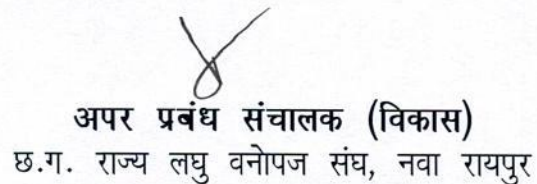 अपर प्रबंध संचालक (विकास)
छ.ग. राज्य लघु वनोपज संघ, नवा रायपुर